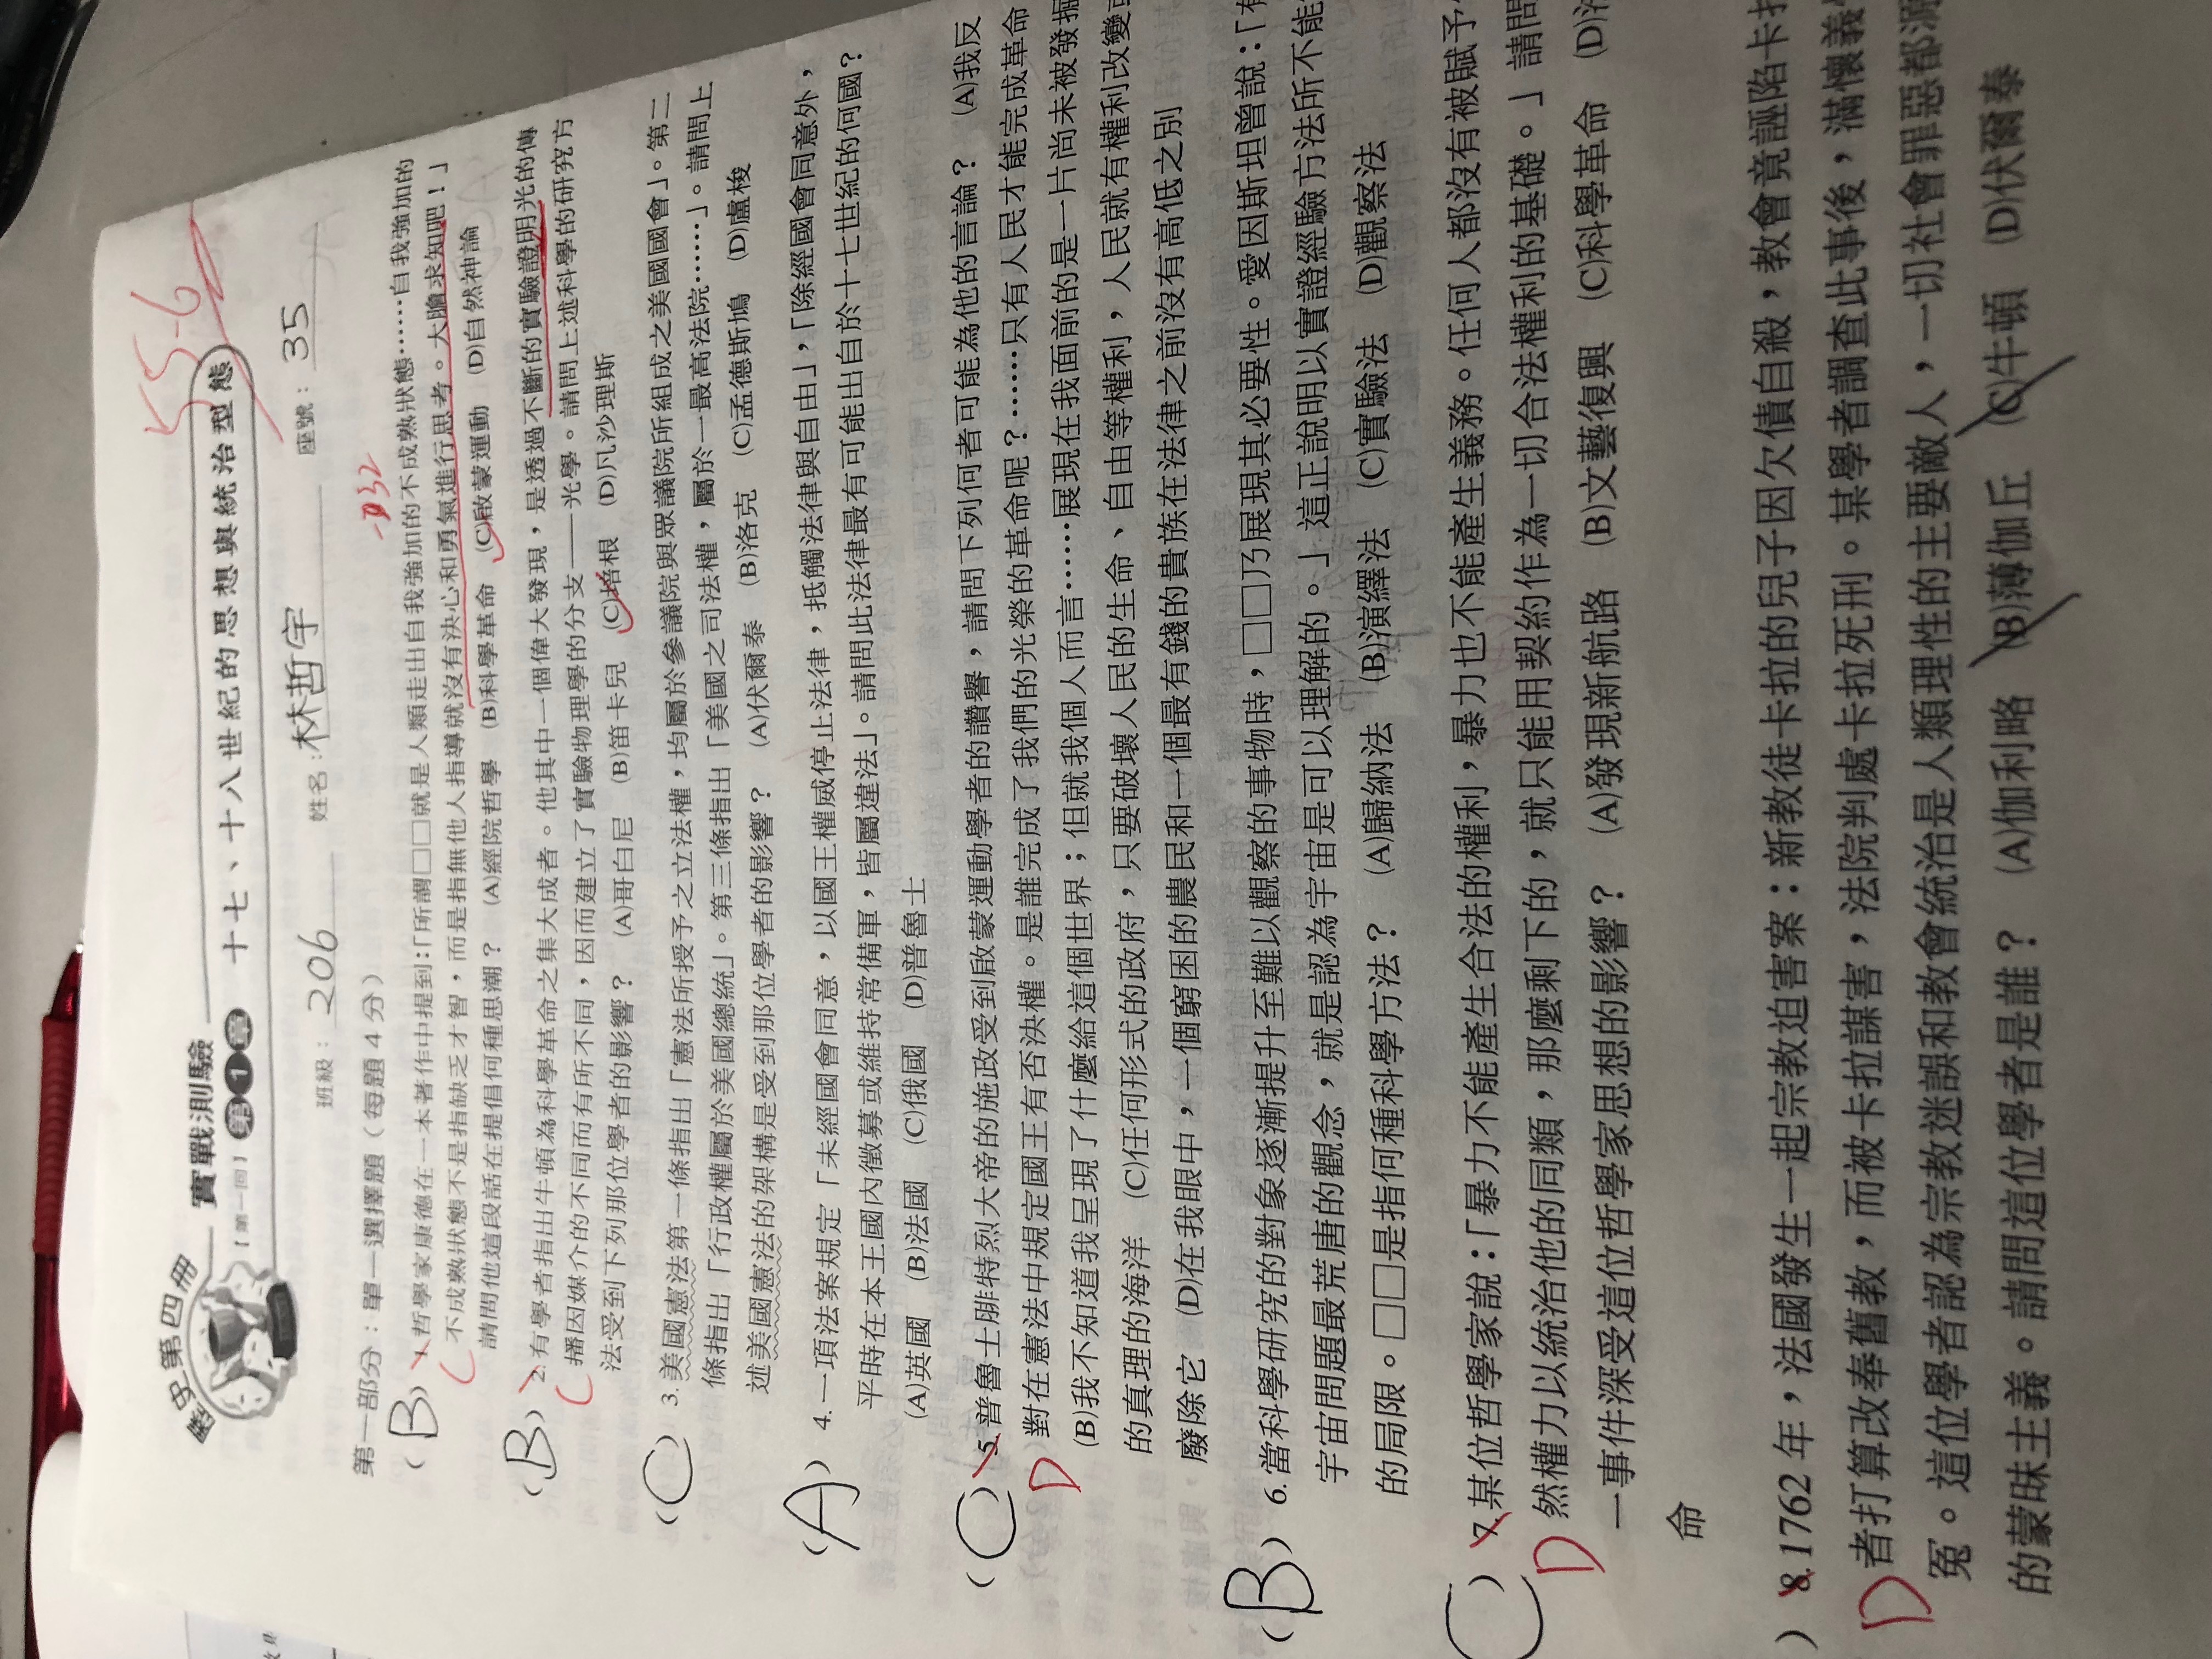 歷史第四冊
實戰測驗
【第一回】 第1章 十七、十八世紀的思想與統治型態
55-6
班級：206 姓名：林哲宇 座號：35
第一部分：單一選擇題（每題4分）
(B) 1.哲學家康德在一本著作中提到：「所謂□□就是人類走出自我強加的不成熟狀態……自我強加的
C 不成熟狀態不是指缺乏才智，而是指無他人指導就沒有決心和勇氣進行思考。大膽求知吧！」
請問他這段話在提倡何種思潮？ (A)經院哲學 (B)科學革命 (C)啟蒙運動 (D)自然神論
(B) 2.有學者指出牛頓為科學革命之集大成者。他其中一個偉大發現，是透過不斷的實驗證明光的傳
C 播因媒介的不同而有所不同，因而建立了實驗物理學的分支——光學。請問上述科學的研究方
法受到下列那位學者的影響？ (A)哥白尼 (B)笛卡兒 (C)培根 (D)凡沙理斯
(C) 3.美國憲法第一條指出「憲法所授予之立法權，均屬於參議院與眾議院所組成之美國國會」。第二
條指出「行政權屬於美國總統」。第三條指出「美國之司法權，屬於一最高法院……」。請問上
述美國憲法的架構是受到那位學者的影響？ (A)伏爾泰 (B)洛克 (C)孟德斯鳩 (D)盧梭
(A) 4.一項法案規定「未經國會同意，以國王權威停止法律，抵觸法律與自由」，「除經國會同意外，
平時在本王國內徵募或維持常備軍，皆屬違法」。請問此法律最有可能出自於十七世紀的何國？
(A)英國 (B)法國 (C)俄國 (D)普魯士
(C) 5.普魯士腓特烈大帝的施政受到啟蒙運動學者的讚譽，請問下列何者可能為他的言論？ (A)我反
D 對在憲法中規定國王有否決權。是誰完成了我們的光榮的革命呢？……只有人民才能完成革命
(B)我不知道我呈現了什麼給這個世界；但就我個人而言……展現在我面前的是一片尚未被發掘
的真理的海洋 (C)任何形式的政府，只要破壞人民的生命、自由等權利，人民就有權利改變或
廢除它 (D)在我眼中，一個窮困的農民和一個最有錢的貴族在法律之前沒有高低之別
(B) 6.當科學研究的對象逐漸提升至難以觀察的事物時，□□乃展現其必要性。愛因斯坦曾說：「有
宇宙問題最荒唐的觀念，就是認為宇宙是可以理解的。」這正說明以實證經驗方法所不能
的局限。□□是指何種科學方法？ (A)歸納法 (B)演繹法 (C)實驗法 (D)觀察法
(C) 7.某位哲學家說：「暴力不能產生合法的權利，暴力也不能產生義務。任何人都沒有被賦予
D 然權力以統治他的同類，那麼剩下的，就只能用契約作為一切合法權利的基礎。」請問
一事件深受這位哲學家思想的影響？ (A)發現新航路 (B)文藝復興 (C)科學革命 (D)
命
) 8.1762年，法國發生一起宗教迫害案：新教徒卡拉的兒子因欠債自殺，教會竟誣陷卡拉
D 者打算改奉舊教，而被卡拉謀害，法院判處卡拉死刑。某學者調查此事後，滿懷義
冤。這位學者認為宗教迷誤和教會統治是人類理性的主要敵人，一切社會罪惡都源
的蒙昧主義。請問這位學者是誰？ (A)伽利略 (B)薄伽丘 (C)牛頓 (D)伏爾泰